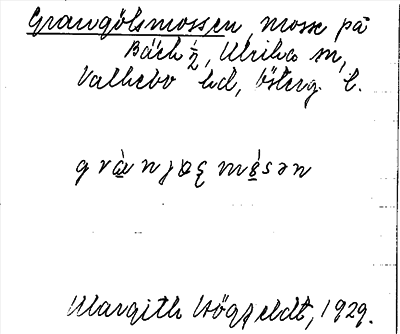 Grangölsmossen, mosse på
Bäck ½, Ulrika sn,
Valkebo hd, Österg. l.
Margith Högfeldt, 1929.